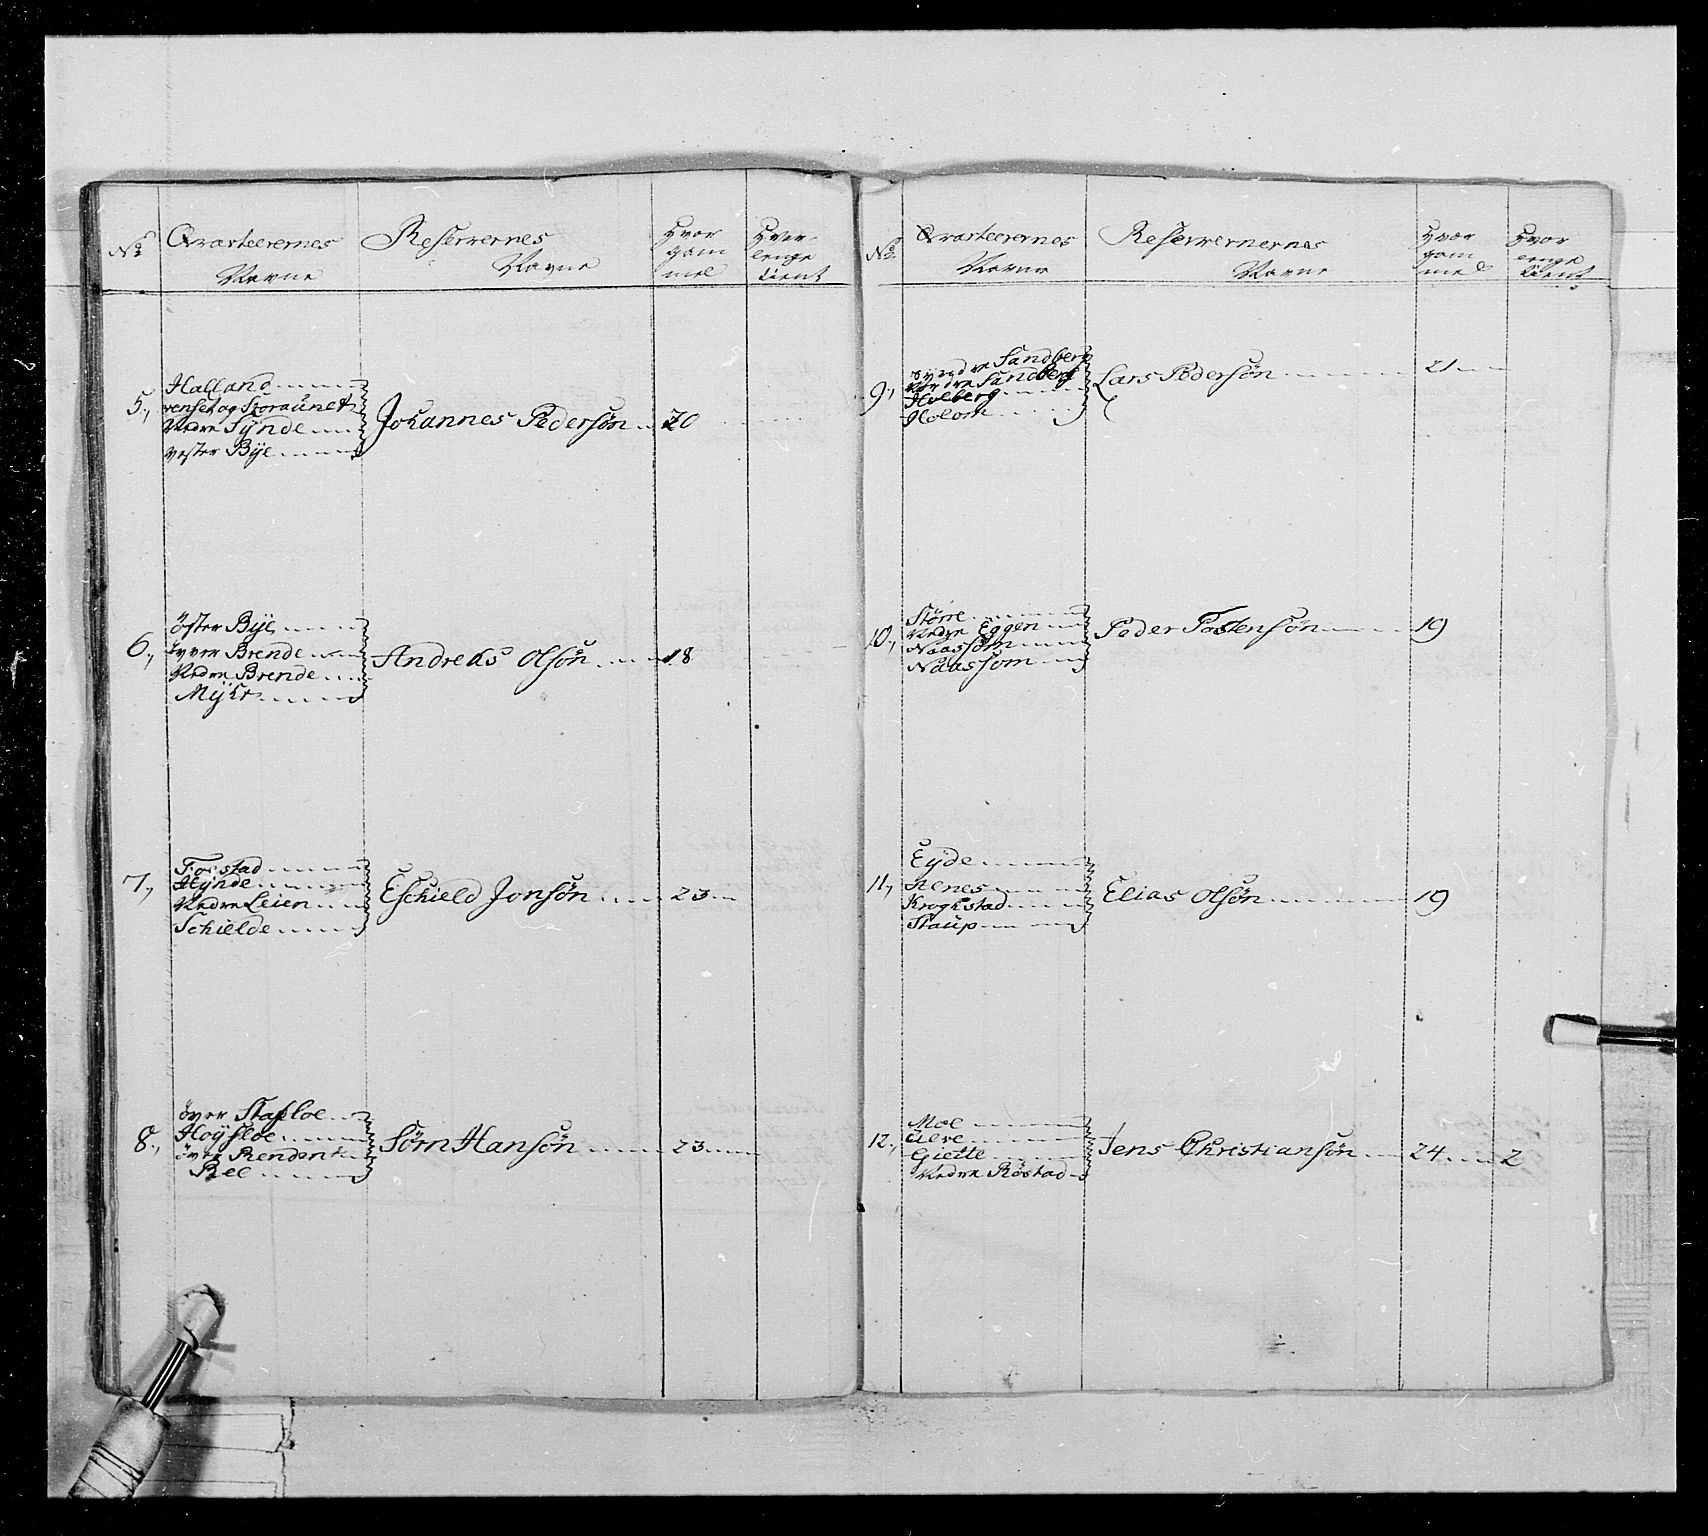 No Qvarteerernes Navne
Reserverernes Navne
Hvor gam mel
Hver lenge tient
5., Halland
venset og Storaunet
Nedre Tynde
vester Bÿe
Johannes Pedersön 20
6., öster Bÿe
över Brende
Nedre Brende
Mÿkr
Andreas Olsön 18
7., Forstad
Hÿnde
Nedre Leien
Schielde
Eschield Jonsön 23
8., över Stafloe
Höÿsloe
övre Rendent
Ree
Sörn Hansön 23
No Qvarteerernes Navne
Reserverernernes Navne
Hvor gam mel
Hvor lenge tient
9., Sandberg
Nedre Sandberg
Holberg
Holom
Lars Pedersön 21
10., Störe
Nedre Eggen
Naassom
Naassom
Peder Tostensön 19
11., Eÿde
Kenes
Krogstad
Staup
Elias Olsön 19
12., Moe
Giette
Nedre Röstad
Jens Christiansön 24 2